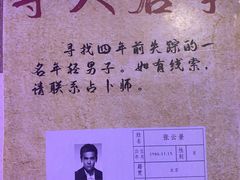 寻人启事
寻找四年前失踪的一
名年轻男子。如有线索，
请联系占卜师。
姓名 张云景
出生 1986.11.15 性别 男
籍贯 北京